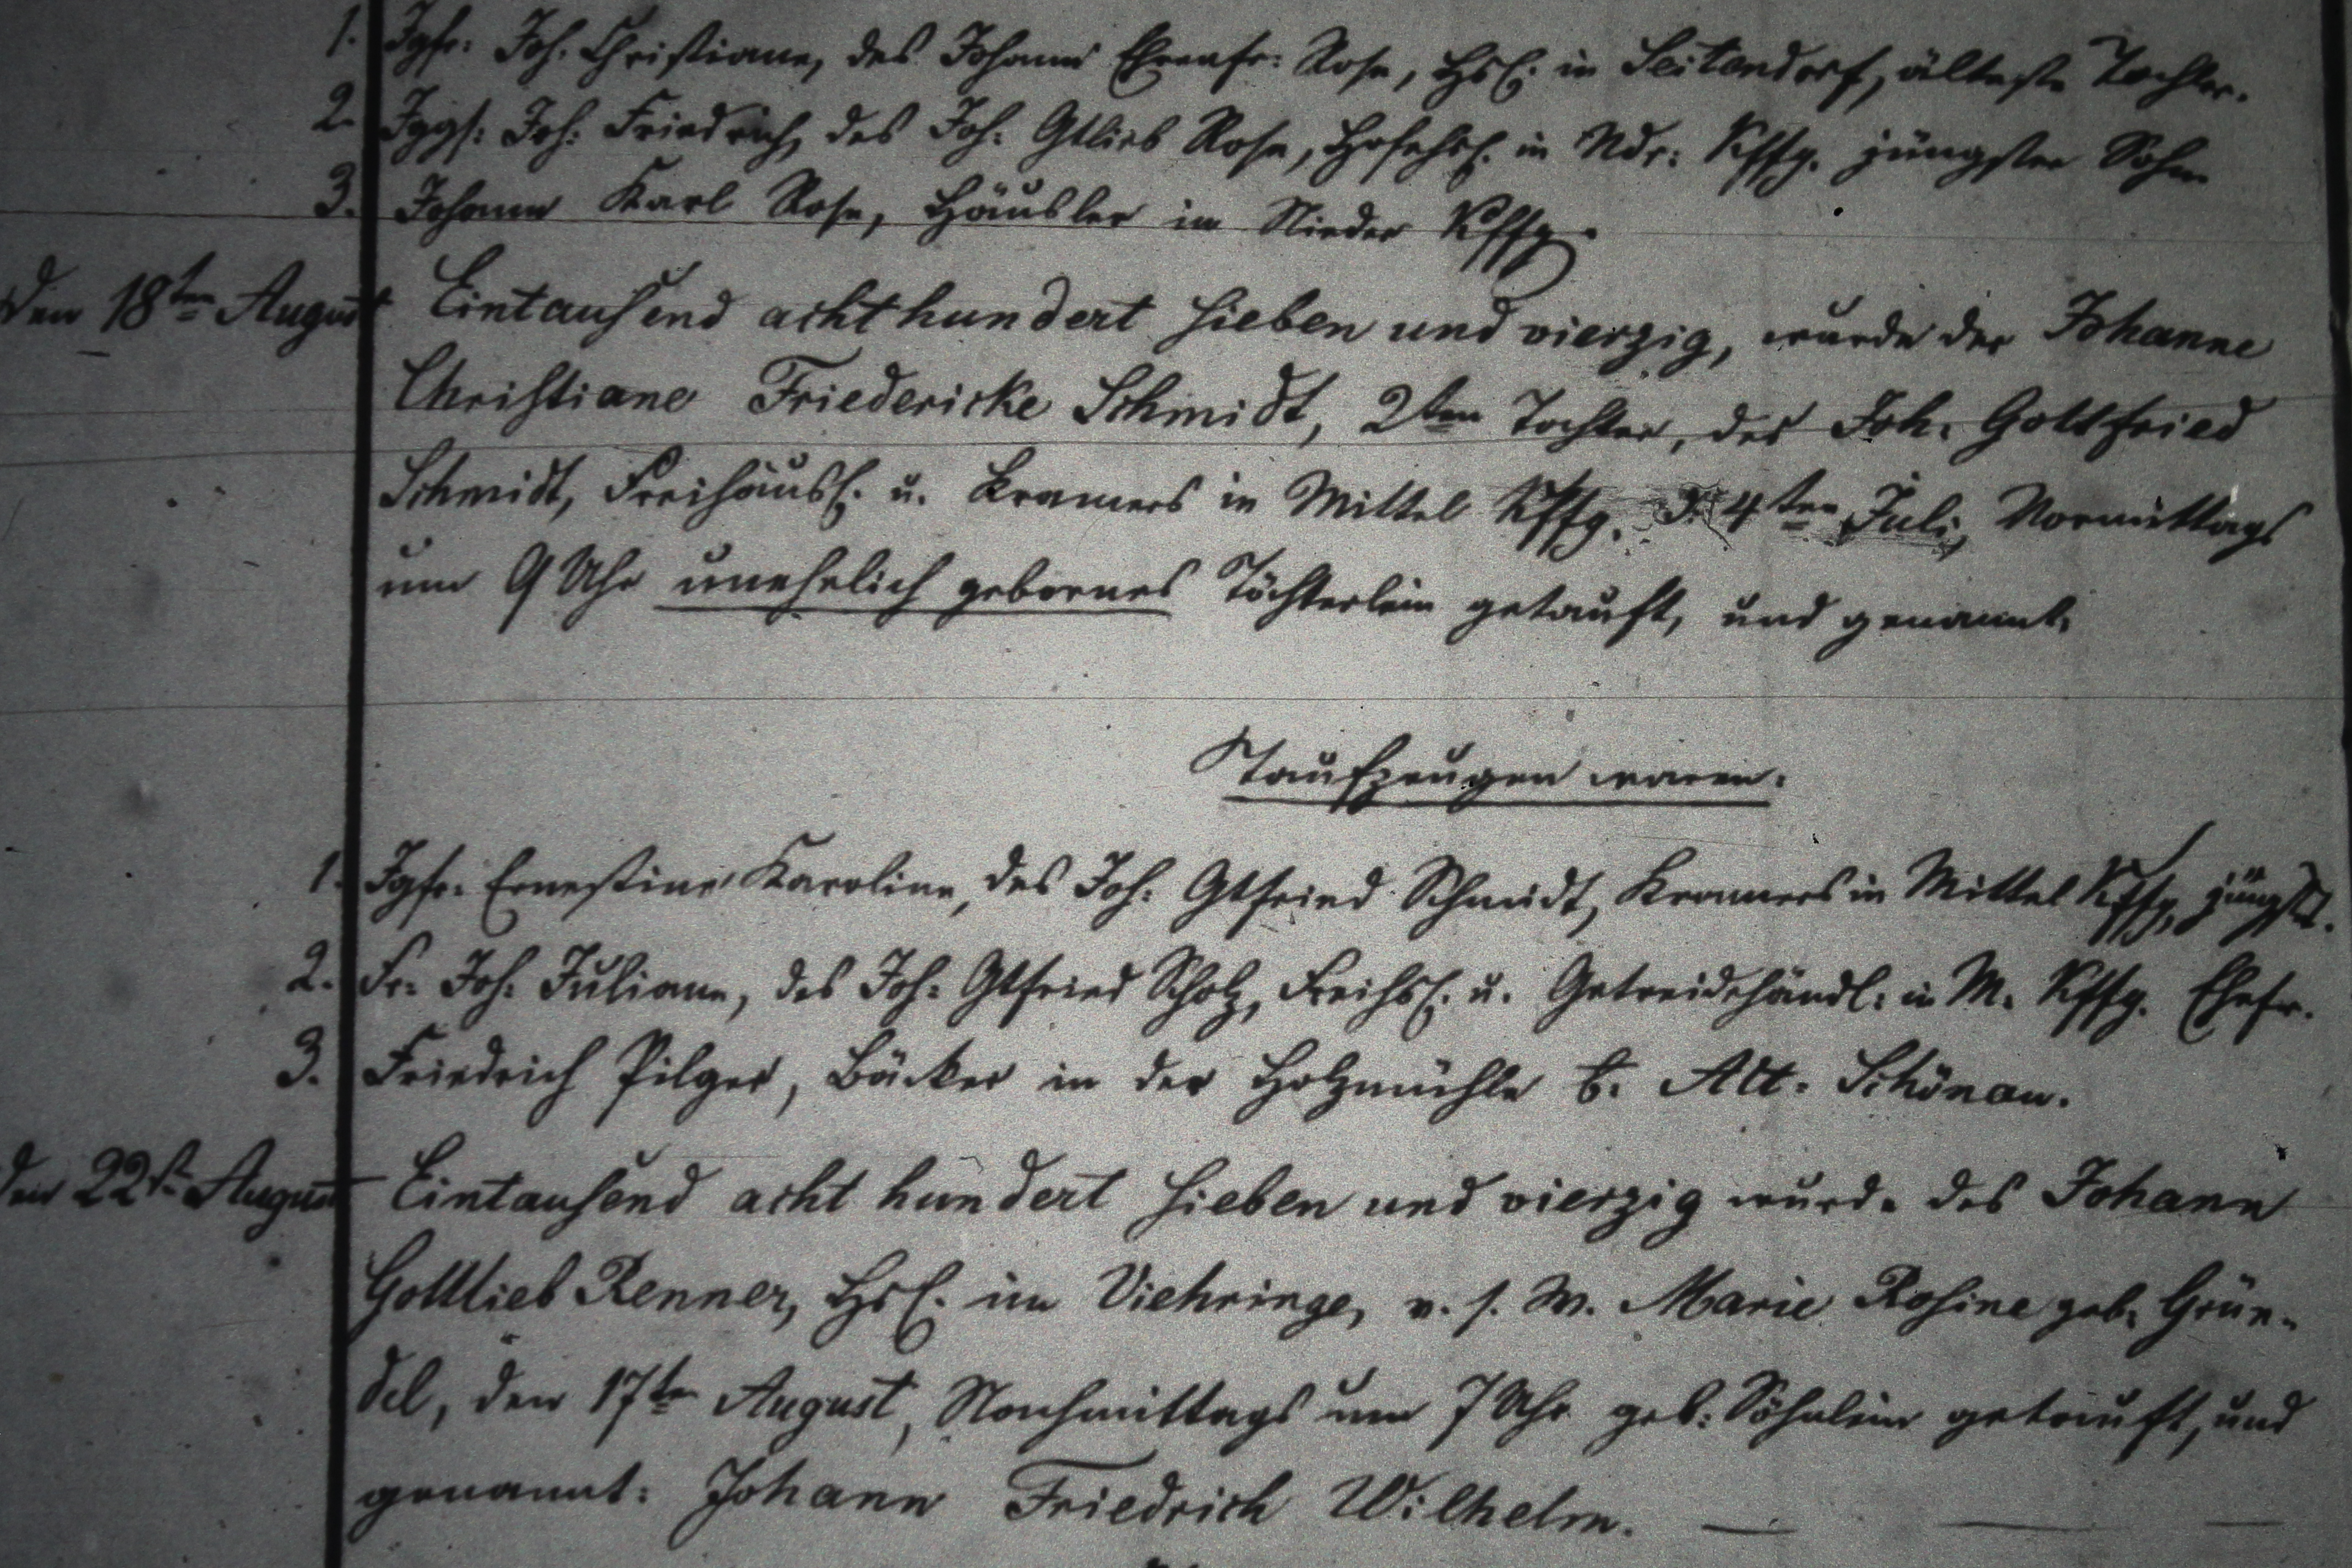 1. Jgfr: Joh. Christiane, des Johann Ehrenfr: Rose, Hsl. in Seitendorf, älteste Tochter.
2. Jggs: Joh: Friedrich, des Joh: Gtlieb Rose, Hofehsl. in Ndr: Kffg. jüngster Sohn
3. Johann Karl Rose, Häusler in Nieder Kffg.
Den 18ten August Eintausend achthundert sieben und vierzig, wurde der Johanne
Christiane Friedericke Schmidt, 2ten Tochter, des Joh. Gottfried
Schmidt, Freihäusl. u. Kramers in Mittel Kffg. d. 4ten Juli, Vormittags
um 9 Uhr unehelich gebornes Töchterlein getauft, und genannt:
Taufzeugen waren:
1. Jgfr: Ernestine Karoline, des Joh: Gtfried Schmidt, Kramers in Mittel Kffg. jüngste.
2. Fr: Joh: Juliane, des Joh: Gtfried Scholz, Freihsl. u. Getreidehändl: in M. Kffg. Ehefr.
3. Friedrich Pilger, Bäcker in der Holzmühle b. Alt-Schönau.
Den 22st August Eintausend acht hundert sieben und vierzig wurde des Johann
Gottlieb Renner, Hsl. im Viehringe, v. s. W. Marie Rosine geb: Grün-
del, den 17ten August, Nachmittags um 7 Uhr geb: Söhnlein getauft, und
genannt: Johann Friedrich Wilhelm.